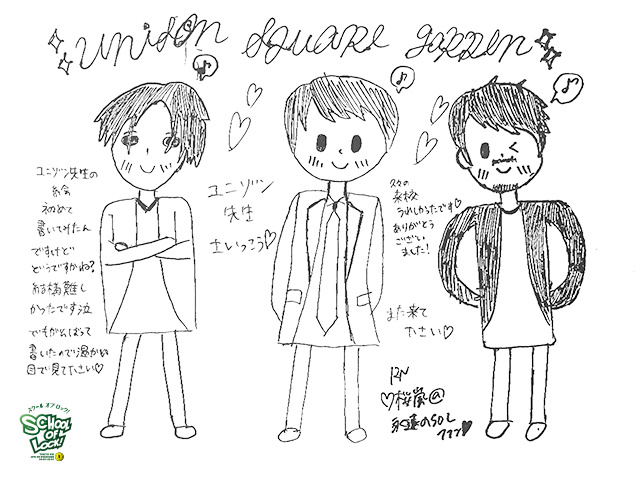 unison square garden
ユニゾン先生の
お会
初めて
書いてみたん
ですけど
どうですかね?
ある程難し
かったです泣
でもがんばって
書いたので温かい
目で見て下さい♡
ユニゾン
先生
さいっこう♡
久々の
来校
うれしかったです♡
ありがとう
ござい
ました!
また来て
下さい♡
RN
♡桜嵐@
永遠のSOL
ファン♥
スクールオブロック!
SCHOOL
OF
LOCK!